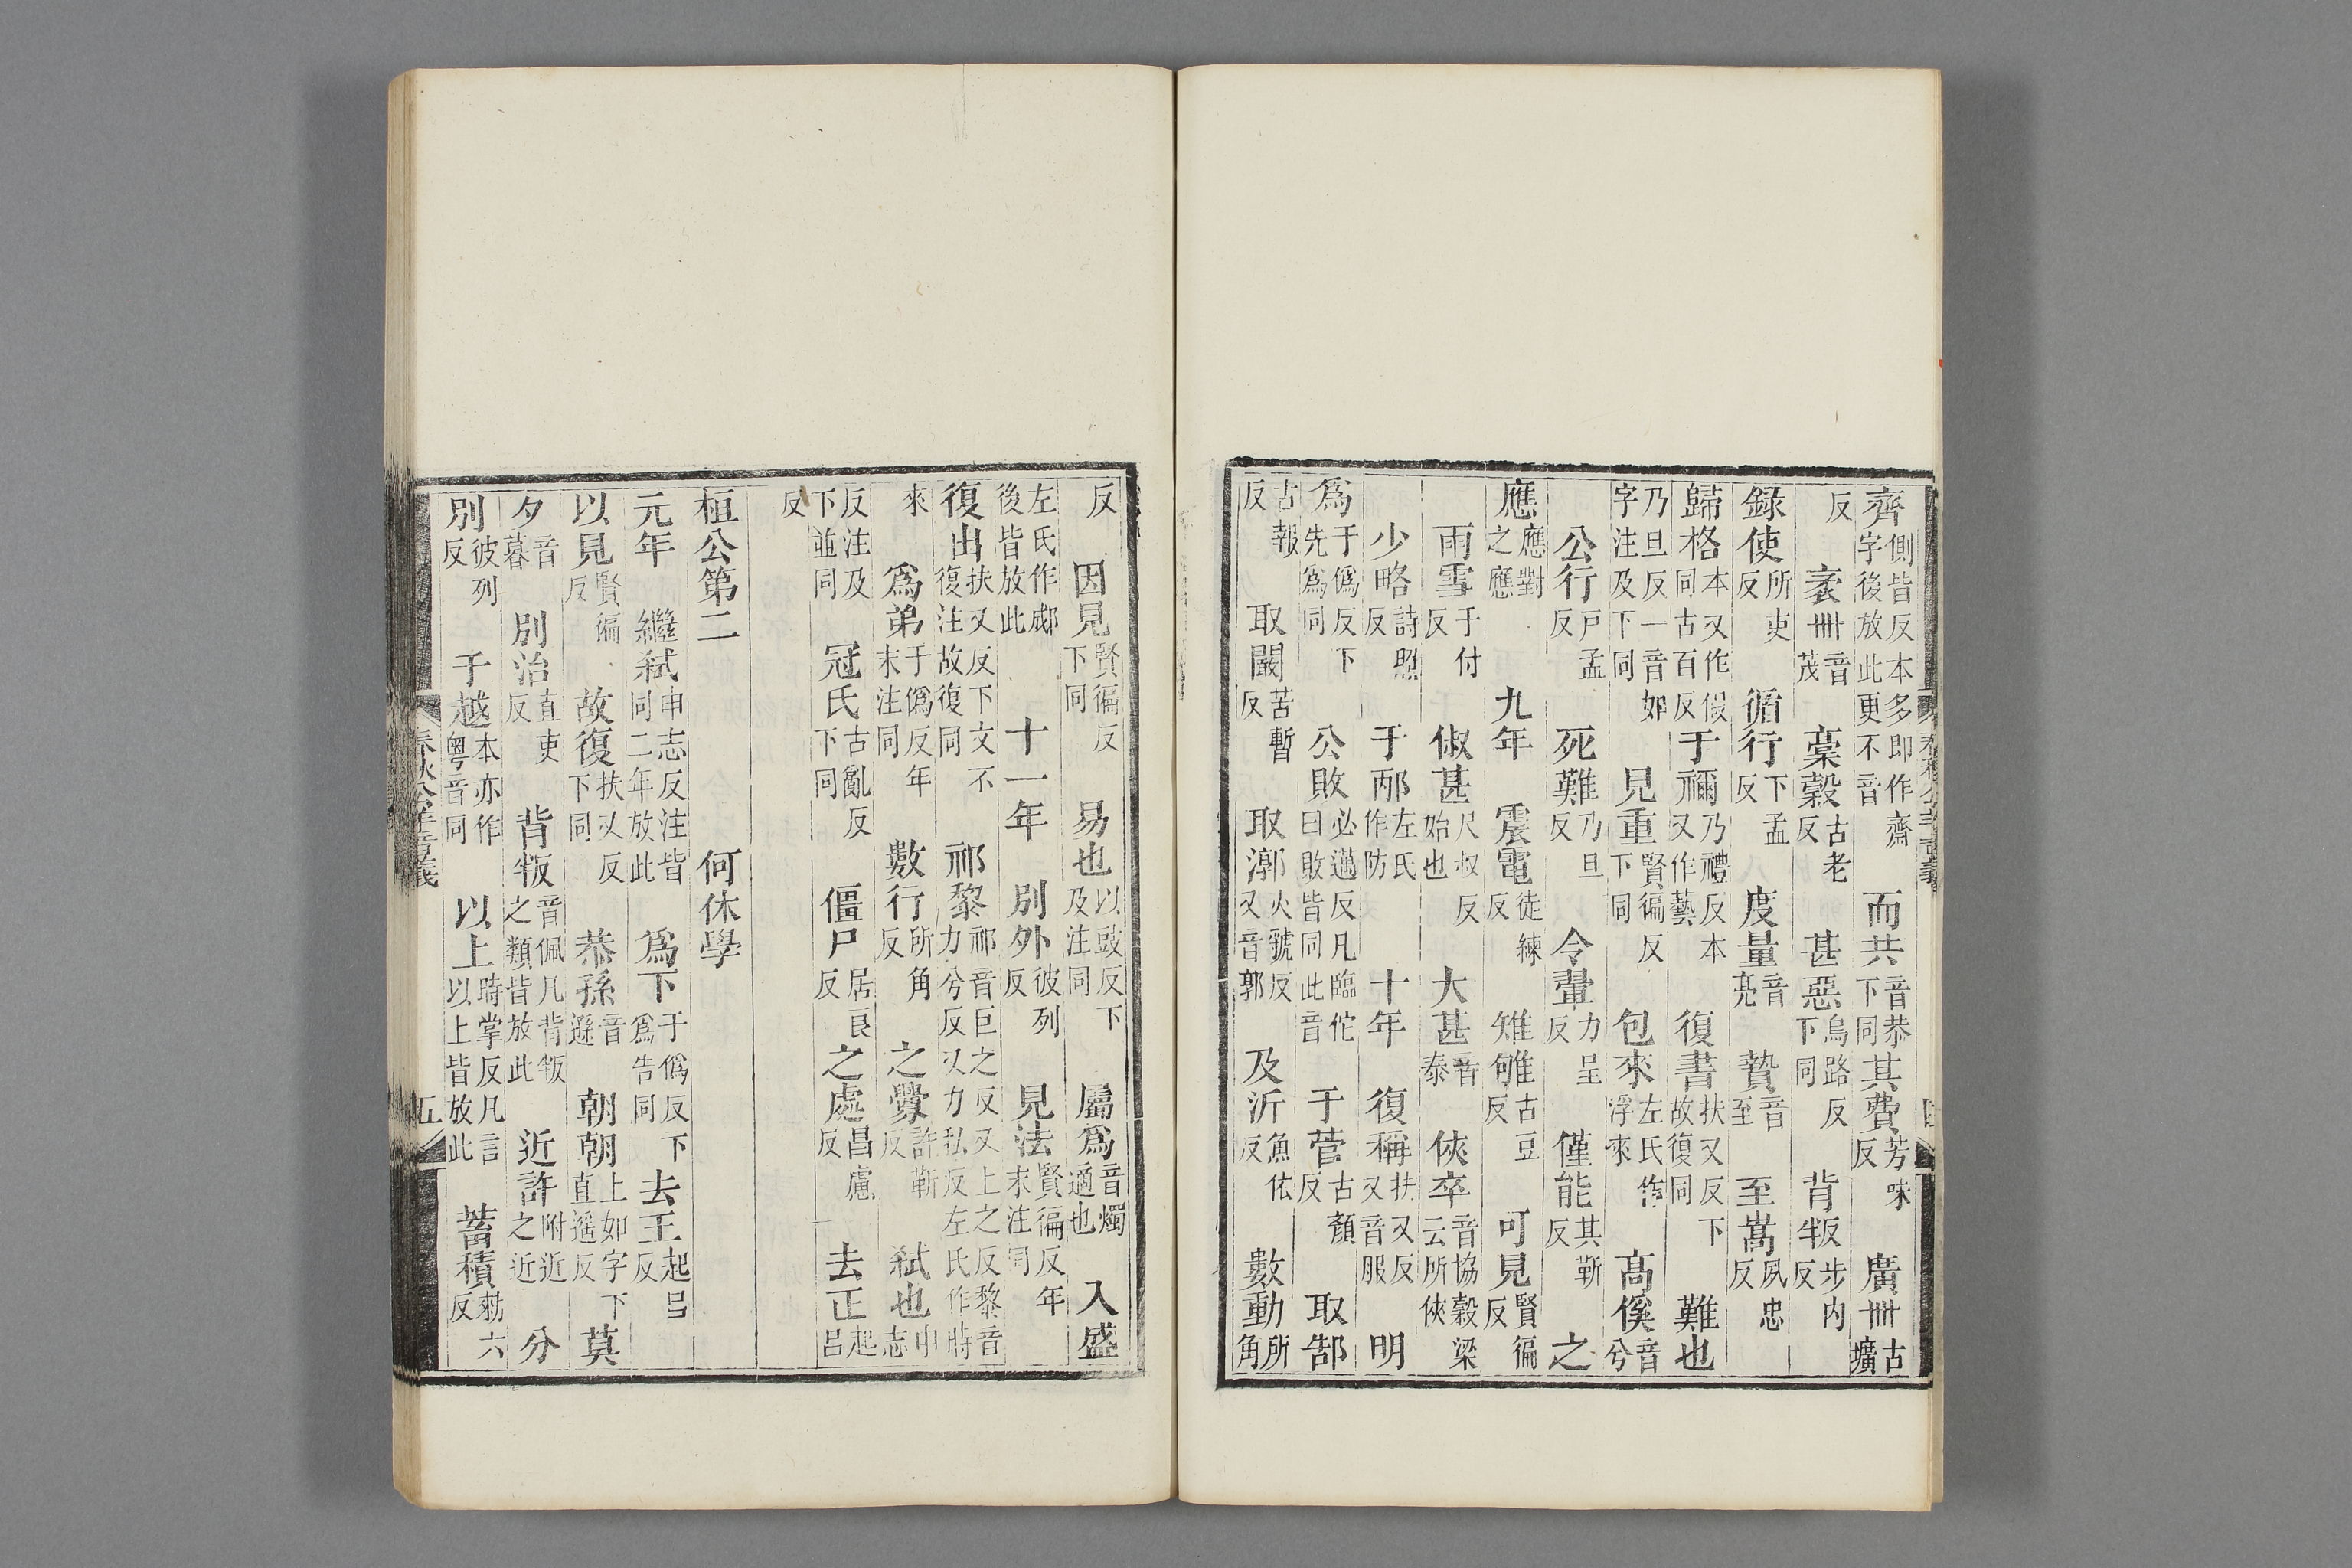 齊側皆反本多即作齋字後放此更不音 而共音恭下同 其費芳味反 廣卌古壙
反 袤卌音茂 稾穀古老反 甚惡烏路反下同 背叛步内反
録使所吏反 循行下孟反 度量音亮 贄音至 至嵩夙忠反
歸格本又作假同古百反 于禰乃禮反本又作藝 復書扶又反下故復同 難也
乃旦反一音如字注及下同 見重賢徧反下同 包來左氏作浮來 高傒音兮
公行戸孟反 死難乃旦反 令翬力呈反 僅能其靳反 之
應應對之應 九年 震電徒練反 雉雊古豆反 可見賢徧反
雨雪于付反 俶甚尺叔反始也 大甚音泰 俠卒音協穀梁云所俠
少略詩照反 于邴左氏作防 十年 復稱扶又反又音服 明
爲于僞反下先爲同 公敗必邁反凡臨佗曰敗皆同此音 于菅古顏反 取郜
古報反 取闞苦暫反 取漷火虢反又音郭 及沂魚依反 數動所角
反 因見賢徧反下同 易也以豉反下及注同 屬爲音燭適也 入盛
左氏作郕後皆放此 十一年 別外彼列反 見法賢徧反年末注同
復出扶又反下文不復注故復同 祁黎祁音巨之反又上之反黎音力兮反又力私反左氏作時
來 爲弟于僞反年末注同 數行所角反 之釁許靳反 弑也申志
反注及下並同 冠氏古亂反下同 僵尸居良反 之處昌慮反 去正起呂
反
桓公第二 何休學
元年 繼弑申志反注皆同二年放此 爲下于僞反下爲告同 去王起呂反
以見賢徧反 故復扶又反下同 恭孫音遜 朝朝上如字下直遥反 莫
夕音暮 別治直吏反 背叛音佩凡背叛之類皆放此 近許附近之近 分
別彼列反 于越本亦作粵音同 以上時掌反凡言以上皆放此 蓄積勑六反
春秋公羊音義 五